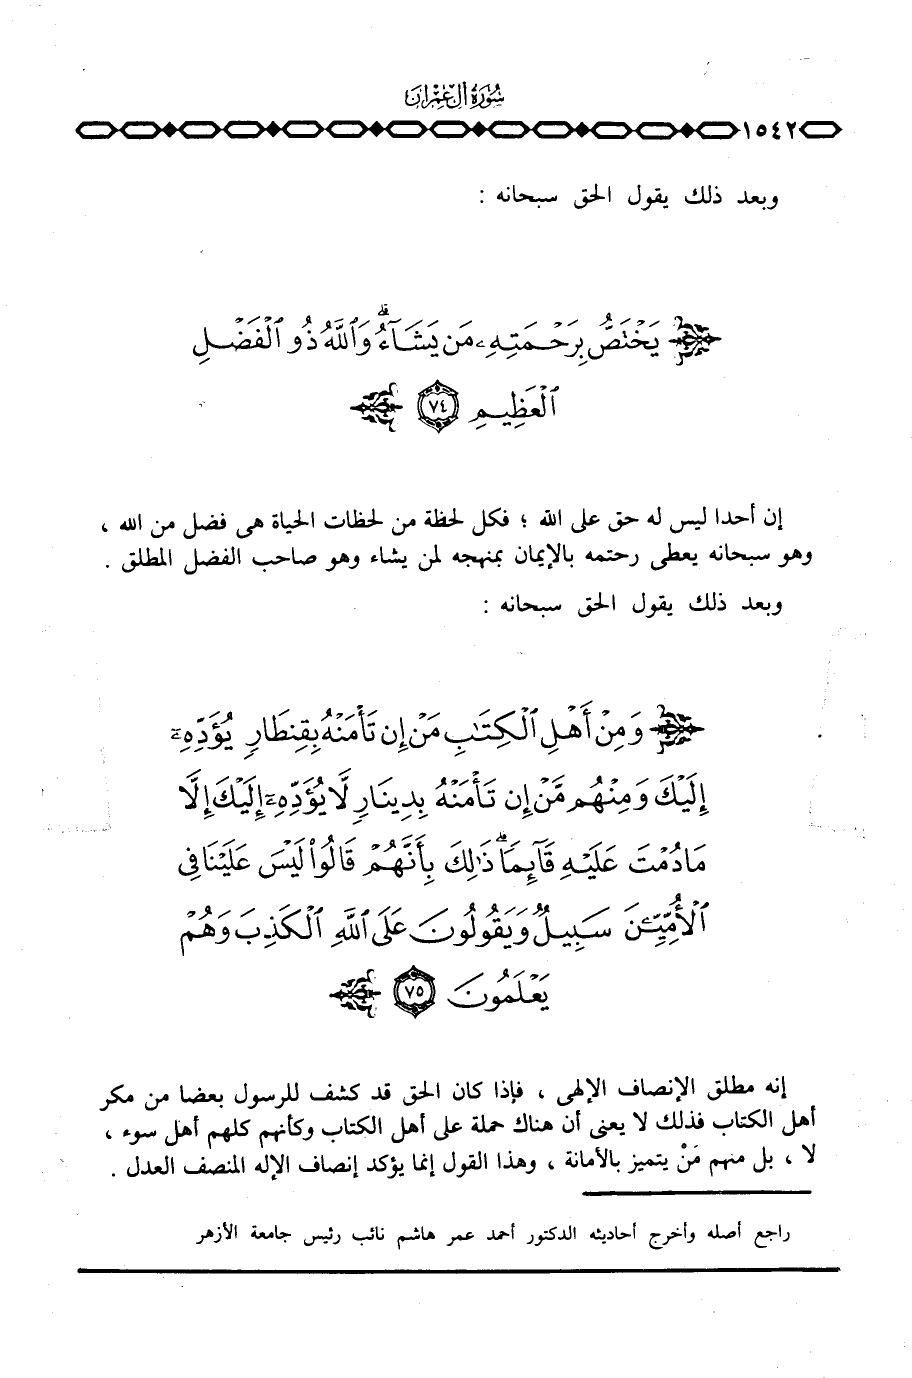 سُورَةُ آل عِمْرَان
١٥٤٢
وبعد ذلك يقول الحق سبحانه :
يَخْتَصُّ بِرَحْمَتِهِۦ مَن يَشَآءُ ۗ وَٱللَّهُ ذُو ٱلْفَضْلِ
ٱلْعَظِيمِ ٧٤
إن أحدا ليس له حق على الله ؛ فكل لحظة من لحظات الحياة هى فضل من الله ،
وهو سبحانه يعطى رحتمه بالإيمان بمنهجه لمن يشاء وهو صاحب الفضل المطلق .
وبعد ذلك يقول الحق سبحانه :
وَمِنْ أَهْلِ ٱلْكِتَٰبِ مَنْ إِن تَأْمَنْهُ بِقِنطَارٍ يُؤَدِّهِۦٓ
إِلَيْكَ وَمِنْهُم مَّنْ إِن تَأْمَنْهُ بِدِينَارٍ لَّا يُؤَدِّهِۦٓ إِلَيْكَ إِلَّا
مَا دُمْتَ عَلَيْهِ قَآئِمًا ۗ ذَٰلِكَ بِأَنَّهُمْ قَالُوا۟ لَيْسَ عَلَيْنَا فِى
ٱلْأُمِّيِّـۧنَ سَبِيلٌ وَيَقُولُونَ عَلَى ٱللَّهِ ٱلْكَذِبَ وَهُمْ
يَعْلَمُونَ ٧٥
إنه مطلق الإنصاف الإلهى ، فإذا كان الحق قد كشف للرسول بعضا من مكر
أهل الكتاب فذلك لا يعنى أن هناك حملة على أهل الكتاب وكأنهم كلهم أهل سوء ،
لا ، بل منهم مَنْ يتميز بالأمانة ، وهذا القول إنما يؤكد إنصاف الإله المنصف العدل .
راجع أصله وأخرج أحاديثه الدكتور أحمد عمر هاشم نائب رئيس جامعة الأزهر